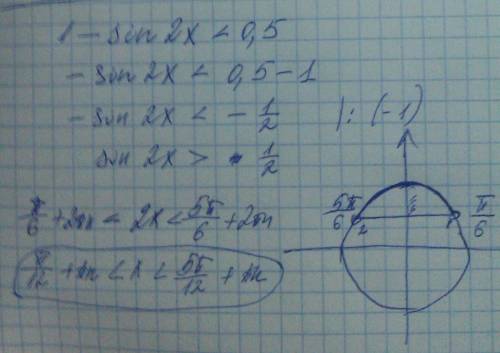 1 - sin 2x < 0,5
- sin 2x < 0,5 - 1
- sin 2x < - 1/2 |: (-1)
sin 2x > 1/2
π/6 + 2πn < 2x < 5π/6 + 2πn
π/12 + πn < x < 5π/12 + πn
5π/6 π/6